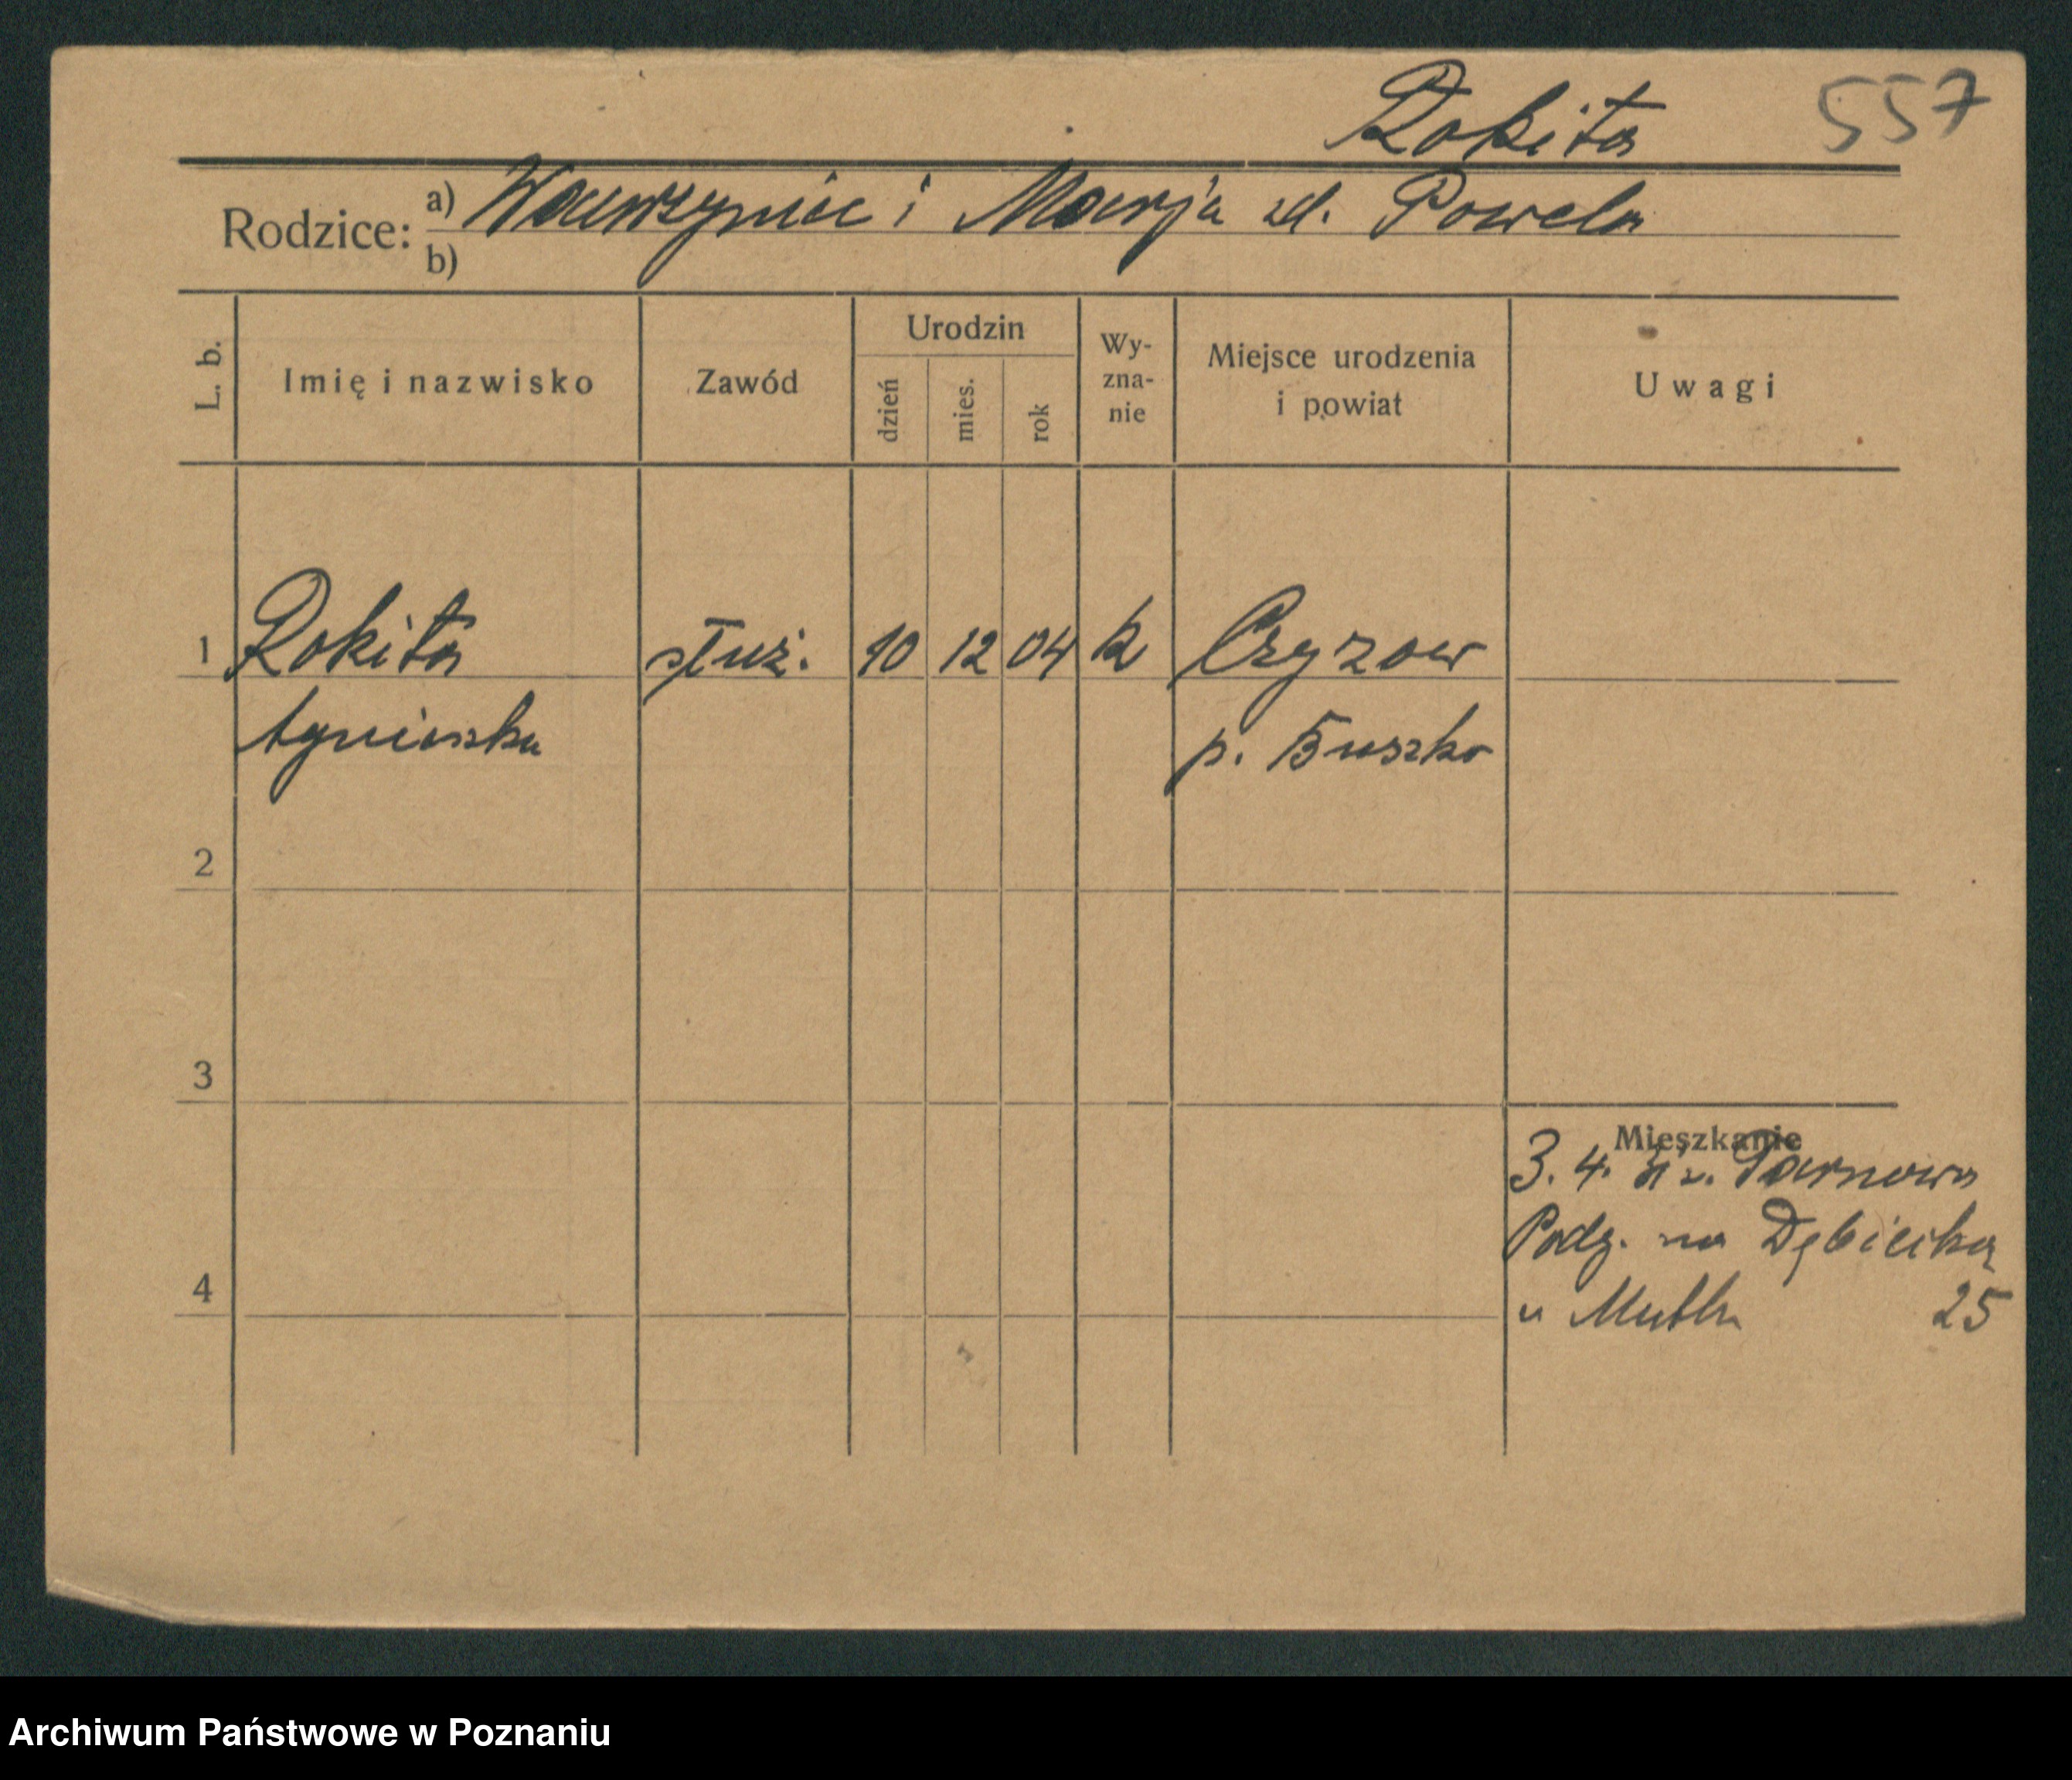 Rokita 557
Rodzice: a) Wawrzyniec i Marja zd. Powela
b)
L. b. Imię i nazwisko Zawód Urodzin dzień mies. rok Wy-zna-nie Miejsce urodzenia i powiat Uwagi
1 Rokita służ. 10 12 04 k Czyzow
Agnieszka p. Buszko
2
3
Mieszkanie
3. 4. z Tarnowa
Podg. na Dębiecką
4
u 25
Archiwum Państwowe w Poznaniu